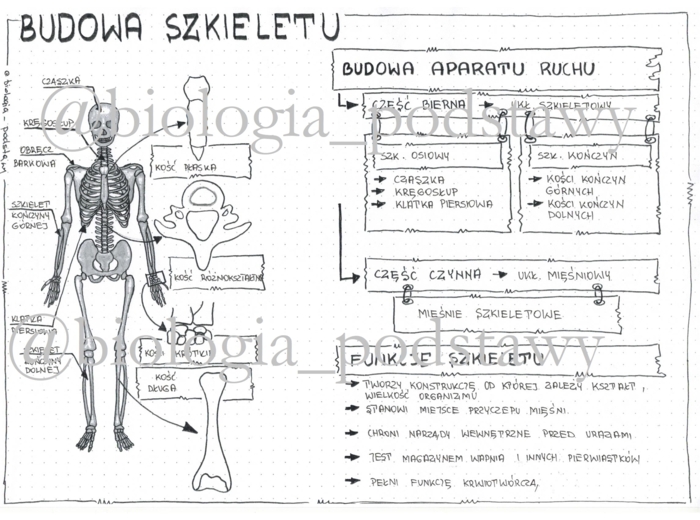 BUDOWA SZKIELETU
© biologia_podstawy
CZASZKA
KRĘGOSŁUP
OBRĘCZ
BARKOWA
SZKIELET
KOŃCZYNY
GÓRNEJ
KLATKA
PIERSIOWA
SZKIELET
KOŃCZYNY
DOLNEJ
KOŚĆ PŁASKA
KOŚĆ RÓŻNOKSZTAŁTNA
KOŚĆ KRÓTKA
KOŚĆ
DŁUGA
BUDOWA APARATU RUCHU
CZĘŚĆ BIERNA → UKŁ. SZKIELETOWY
SZK. OSIOWY
→ CZASZKA
→ KRĘGOSŁUP
→ KLATKA PIERSIOWA
SZK. KOŃCZYN
→ KOŚCI KOŃCZYN
GÓRNYCH
→ KOŚCI KOŃCZYN
DOLNYCH
CZĘŚĆ CZYNNA → UKŁ. MIĘŚNIOWY
MIĘŚNIE SZKIELETOWE
FUNKCJE SZKIELETU
→ TWORZY KONSTRUKCJĘ OD KTÓREJ ZALEŻY KSZTAŁT I
WIELKOŚĆ ORGANIZMU
→ STANOWI MIEJSCE PRZYCZEPU MIĘŚNI
→ CHRONI NARZĄDY WEWNĘTRZNE PRZED URAZAMI
→ JEST MAGAZYNEM WAPNIA I INNYCH PIERWIASTKÓW
→ PEŁNI FUNKCJĘ KRWIOTWÓRCZĄ
@biologia_podstawy
@biologia_podstawy